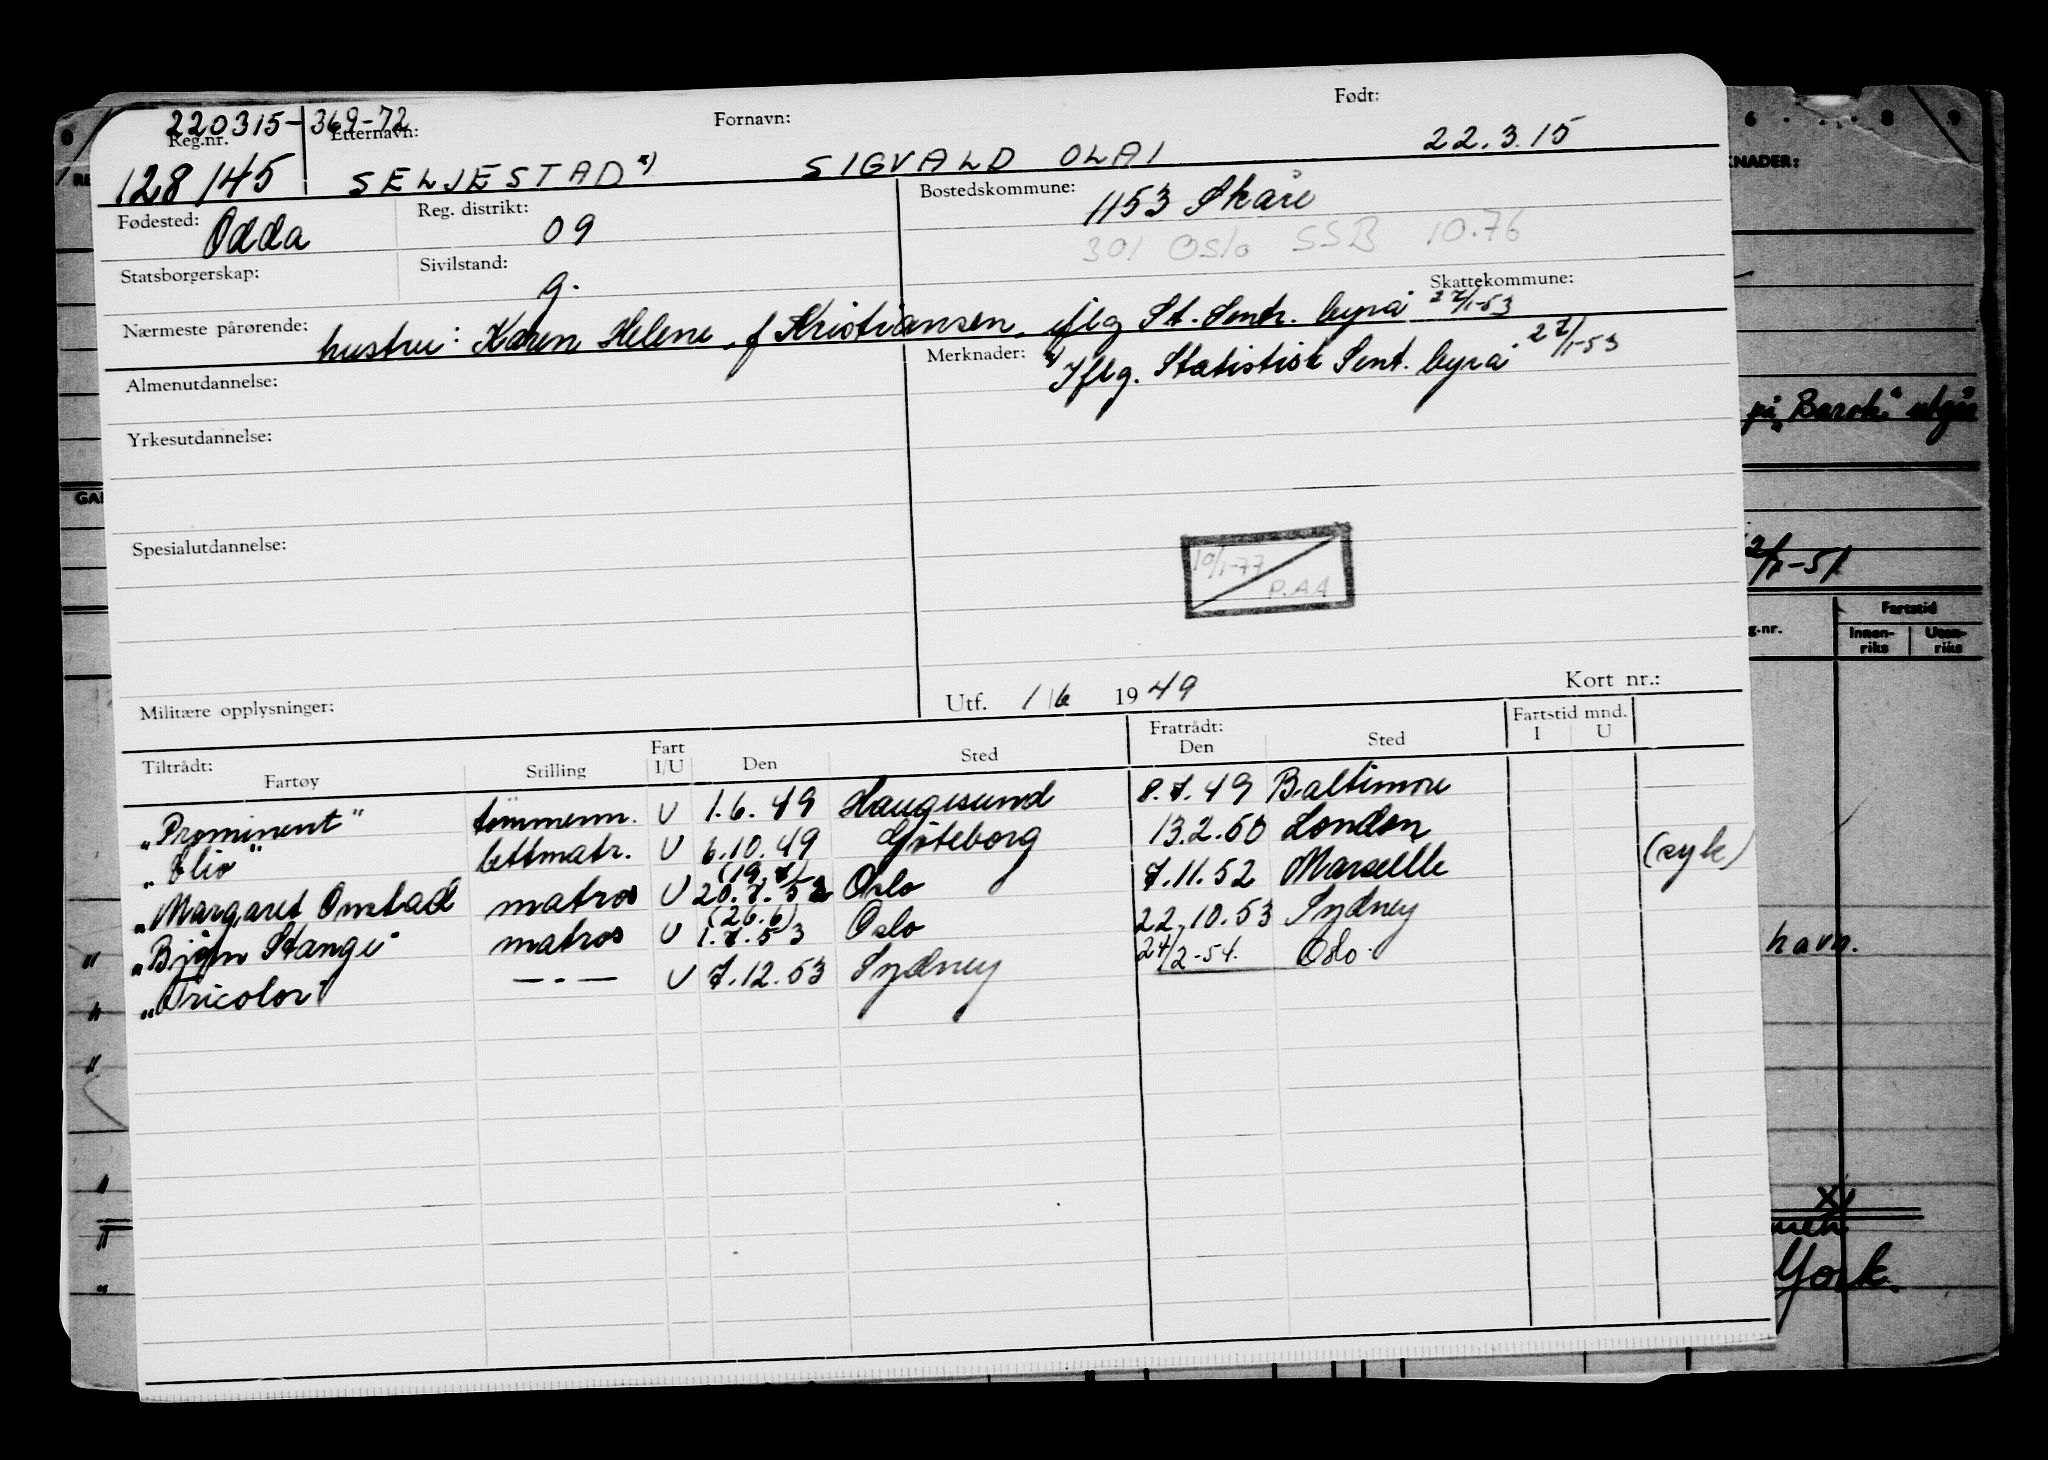 220315-369-72
Reg.nr. Etternavn: Fornavn: Født:
128/45 SELJESTAD x) SIGVALD OLAI 22.3.15
Fødested: Odda Reg. distrikt: 09 Bostedskommune: 1153 Skåre
301 Oslo SSB 10.76
Statsborgerskap: Sivilstand: g. Skattekommune:
Nærmeste pårørende: hustru: Karen Helene, f Kristiansen, iflg St. Sentr. byrå 27/1-53
Almenutdannelse: Merknader: x) Iflg. Statistisk Sent. byrå 27/1-53
Yrkesutdannelse:
Spesialutdannelse:
10/1-77
P.AA
Militære opplysninger: Utf. 1/6 1949 Kort nr.:
Tiltrådt: Fratrådt: Fartstid mnd.
Fartøy Stilling Fart I/U Den Sted Den Sted I U
„Prominent" tømmerm. U 1.6.49 Haugesund 8.7.49 Baltimore
„Clio" lettmatr. U 6.10.49 Gøteborg 13.2.50 London
(19.7)
„Margaret Onstad matros U 20.7.52 Oslo 7.11.52 Marseille (syk)
(26.6)
„Bjørn Stange" matros U 1.7.53 Oslo 22.10.53 Sydney
„Tricolor" —"— U 7.12.53 Sydney 24/2-54. Oslo.
6 8 9
KNADER:
på „Barok" utgår
GA
2/1-51
g.nr. Fartstid
Innen-riks Uten-riks
havn.
x)
York.